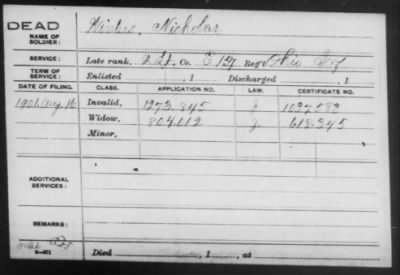 DEAD
NAME OF SOLDIER: Nicholas
SERVICE: Late rank, Co. E 129 Reg't Ohio Inf
TERM OF SERVICE: Enlisted , 1 Discharged , 1
DATE OF FILING. CLASS. APPLICATION NO. LAW. CERTIFICATE NO.
1901 Aug. 16 Invalid, 1273.845 J
Widow, 804.112 J 618.345
Minor,
ADDITIONAL SERVICES:
REMARKS:
Died , 1 , at